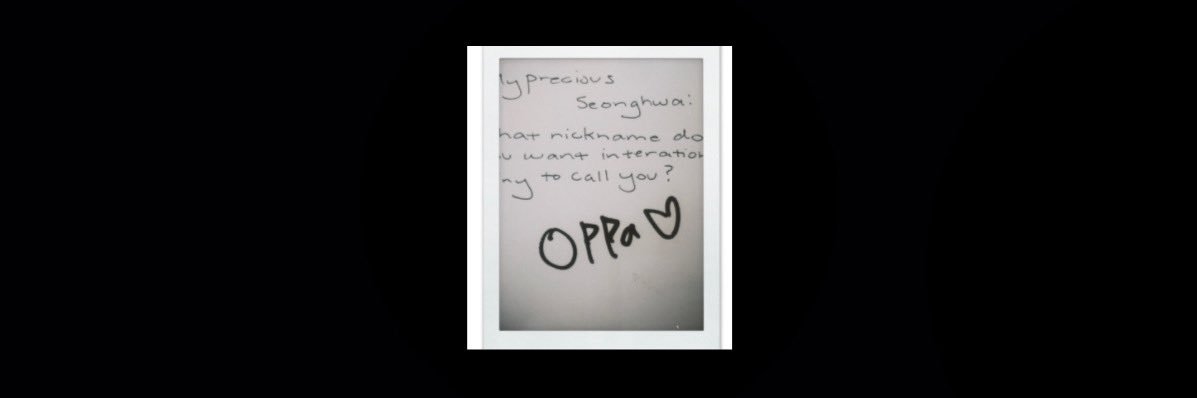 ly precious
Seonghwa:
hat nickname do
u want interation
ny to call you?
OPPa♡